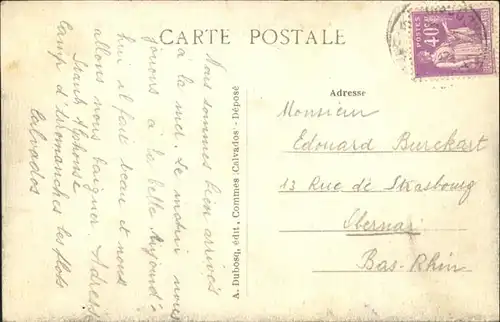 CARTE POSTALE
POSTES
40c
Nous sommes bien arrivés
à la mer. Le matin nous
jouons à la belle Aujourd'
hui il fait beau et nous
allons nous baigner. Adresse
Alphonse
Camp d'arromanches les flots
Calvados
A. Dubosq, édit, Commes (Calvados - Déposé
Adresse
Monsieur
Edouard Burckart
13 Rue de Strasbourg
Obernai
Bas-Rhin